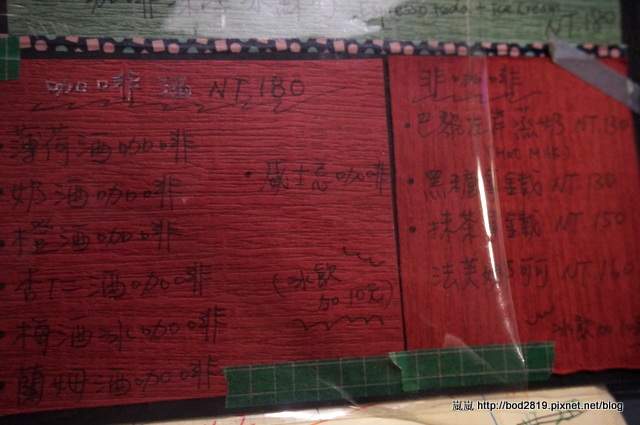 Espresso soda + ice cream
NT.180
咖啡酒 NT.180
• 薄荷酒咖啡
• 奶酒咖啡
• 橙酒咖啡
• 杏仁酒咖啡
• 梅酒冰咖啡
• 蘭姆酒咖啡
• 威士忌咖啡
(冰飲
加10元)
非咖啡
• 巴黎左岸蒸奶 NT.130
(HOT MILK)
• 黑糖拿鐵 NT.130
• 抹茶拿鐵 NT.150
法芙娜可可 NT.160
冰飲加10
嵐嵐 http://bod2819.pixnet.net/blog